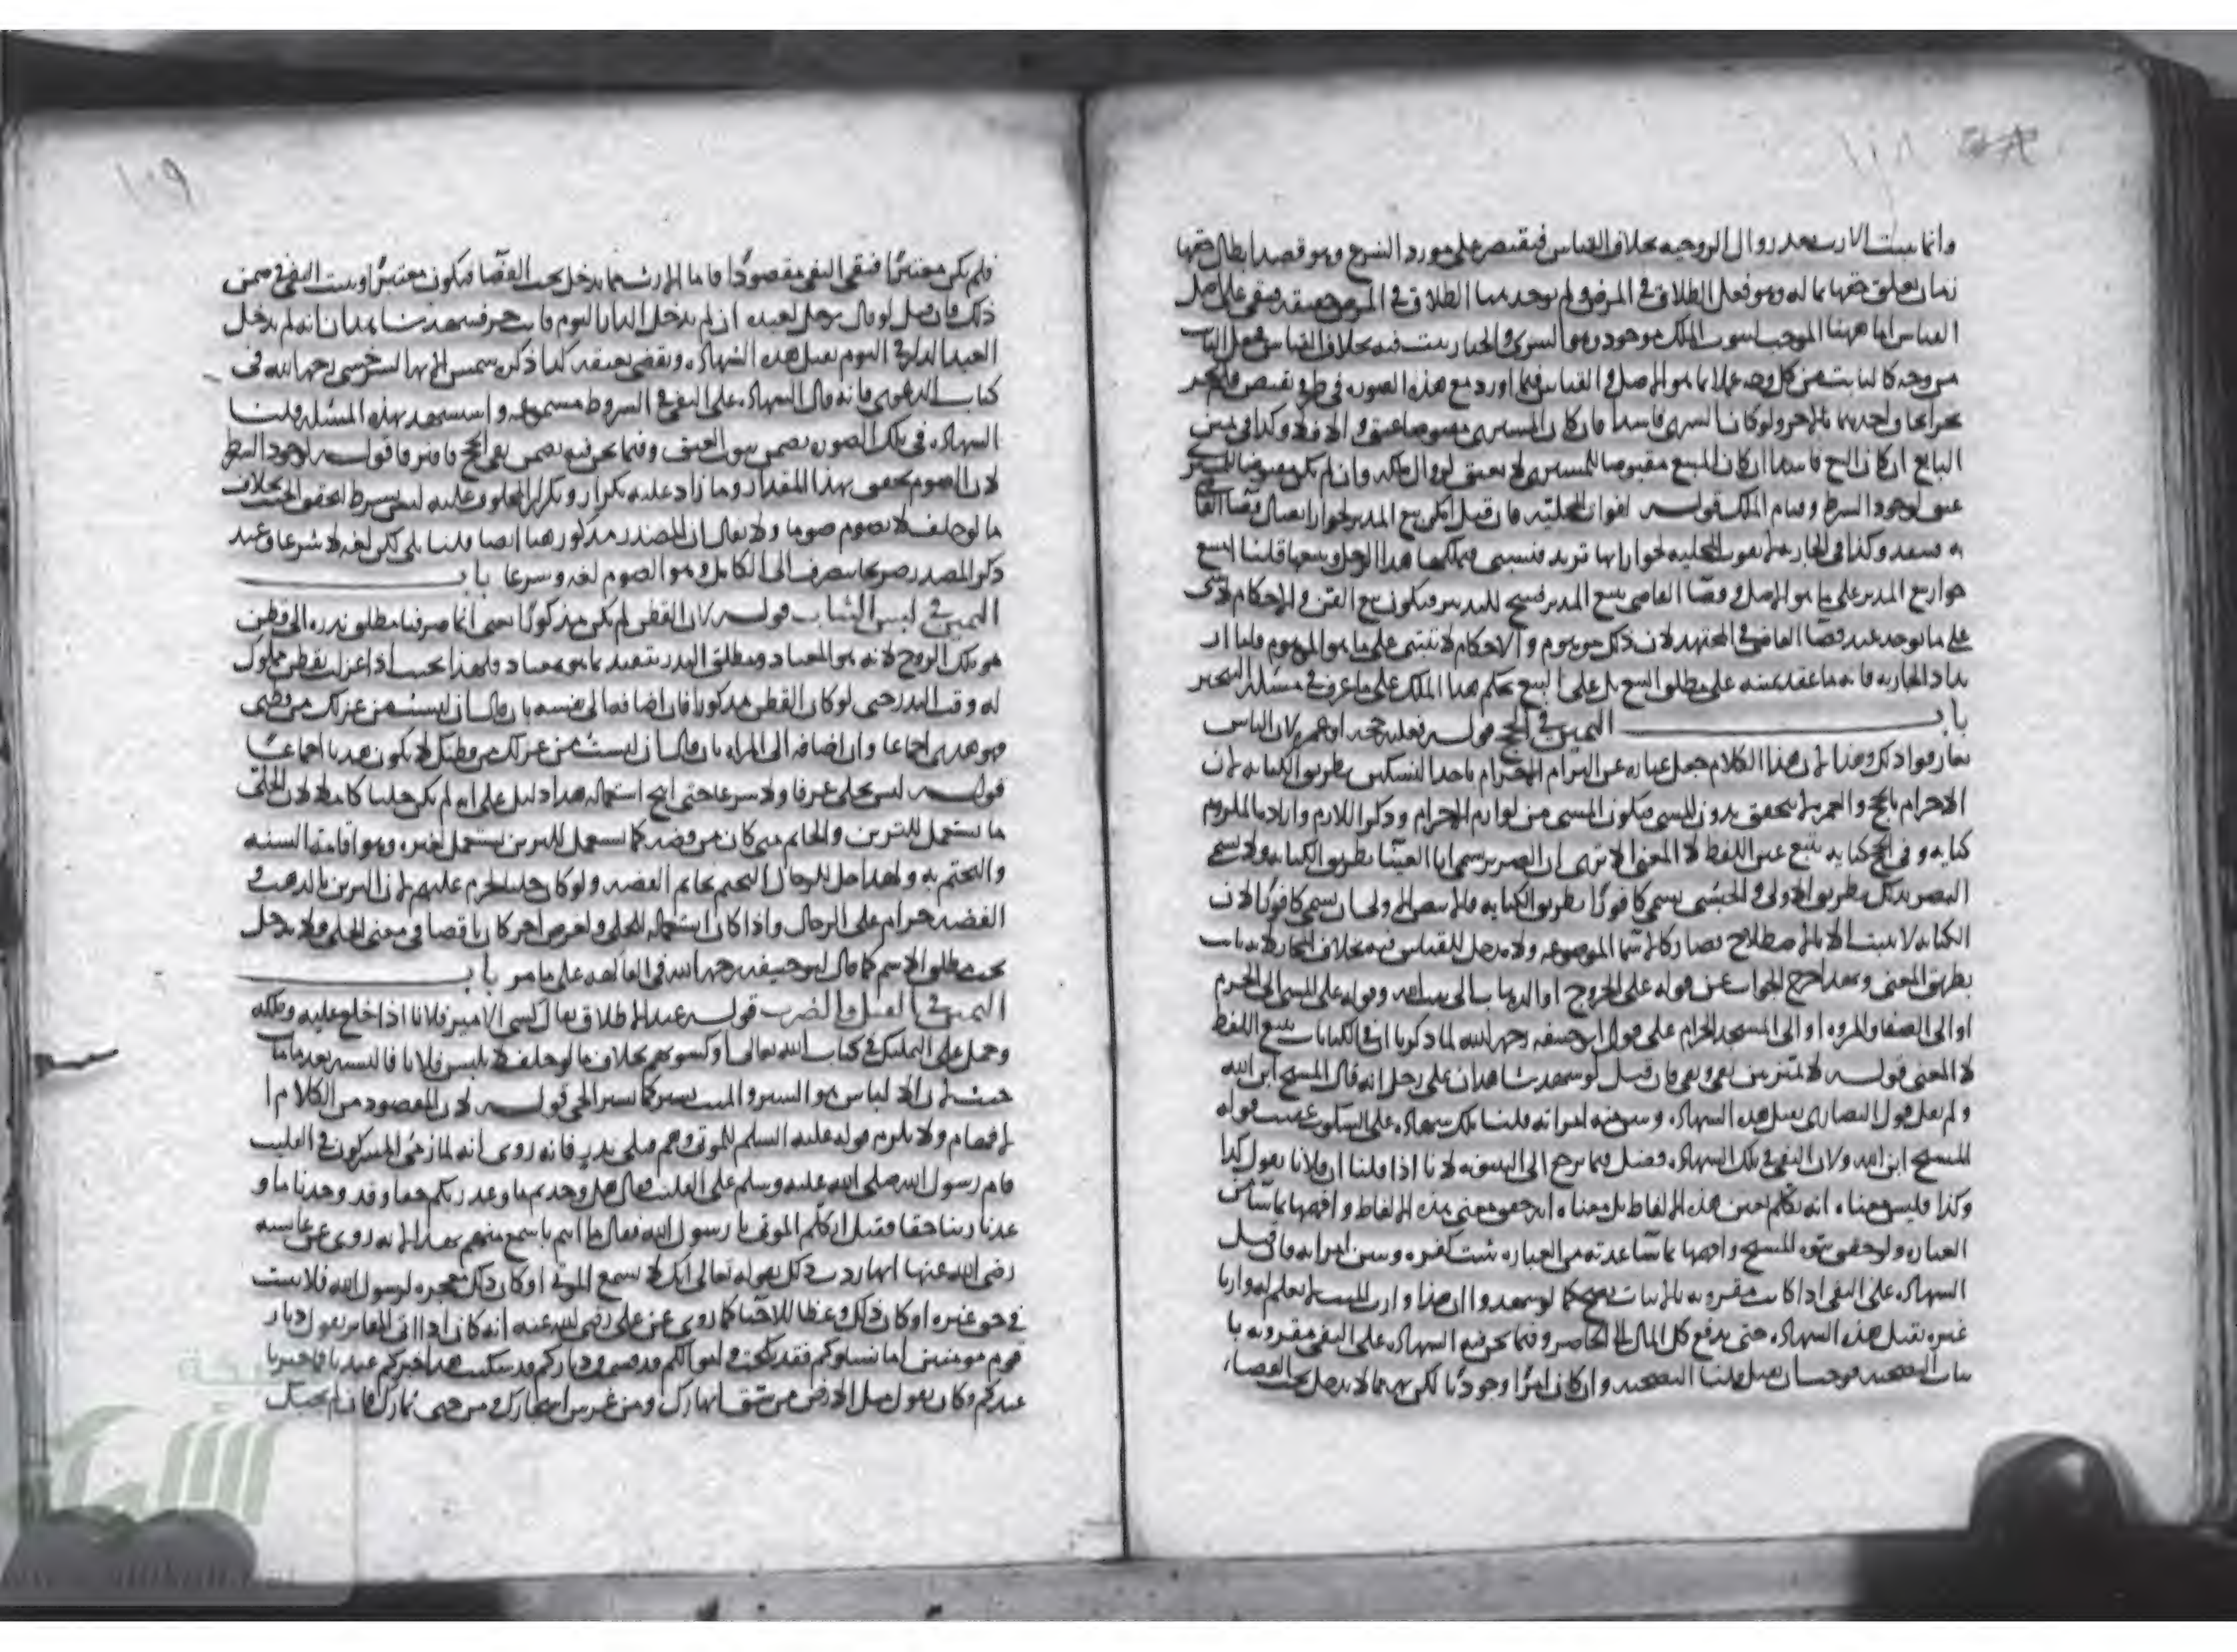 ١٠٨
وانما يثبت الارث بعد زوال الزوجيه بخلاف القياس فيقتصر على مورد الشرع وهو قصد ابطال حقها
زمان تعلق حقها بماله وهو فعل الطلاق في المرض ولم يوجد هنا الطلاق في المرض حقيقه فبقي على اصل
القياس اما ههنا الموجب لثبوت الملك موجود وهو الشرى والخيار يثبت فيه بخلاف القياس
من وجه كالثابت من كل وجه عملا بما هو الاصل في القياس
ولو كان الشرى فاسدا فان كان المشترى مقبوضا عتق والا فلا وكذا في يمين
البايع ان كان البيع فاسدا ان كان المبيع مقبوضا للمشترى لا يعتق لزوال ملكه وان لم يكن مقبوضا للمشترى
عتق لوجود الشرط وقيام الملك قوله لفوات المحليه فان قيل ايكون بيع المدبر لجواز اتصال قضا القاضي
به فينفذ وكذا في الجاريه لم يفوت المحليه لجواز انها ترتد فتسبى فيملكها هذا الرجل وبيعها قلنا امتنع
جواز بيع المدبر على ما هو الاصل وقضا القاضي ببيع المدبر فسخ للتدبير فيكون بيع القن والاحكام لا تبنى
على ما يوجد عند قضا القاضي في المجتهد لان ذلك موهوم والاحكام لا تبنى على ما هو الموهوم واما ار
تداد الجاريه فانه ما عقد يمينه على مطلق البيع بل على البيع بحكم هذا الملك على ما عرف في مسئلة التنجيز
باب اليمين في الحج قوله فعليه حجه او عمره لان الناس
تعارفوا ذلك وهذا لان هذا الكلام جعل عباره عن التزام الاحرام باحدا النسكين بطريق الكنايه لان
الاحرام بالحج والعمره لا يتحقق بدون المشي فيكون المشي من لوازم الاحرام وذكر اللازم واراد به الملزوم
كنايه وفي الحج كنايه يتبع عين اللفظ لا المعنى الا ترى ان الضرير يسمى ابا العينا بطريق الكنايه ولا يسمى
البصير بذلك بطريق الاولى والحبشي يسمى كافورا بطريق الكنايه
الكنايه لا تثبت الا بالاصطلاح فصار كالاسما الموضوعه ولا مدخل للقياس فيه بخلاف المجاز لانه ثابت
بطريق المعنى وبهذا خرج الجواب عن قوله على الخروج او الذهاب الى بيت الله وقوله على المشي الى الحرم
او الى الصفا والمروه او الى المسجد الحرام على قول ابى حنيفه رحمه الله لما ذكرنا ان في الكنايات يتبع اللفظ
لا المعنى قوله لا تمييز بين نفي ونفي فان قيل لو شهد شاهدان على رجل انه قال المسيح ابن الله
ولم يقل قول النصارى يقبل هذه الشهاده وتبين منه امراته قلنا تلك شهاده على السكوت عقيب قوله
المسيح ابن الله ولان النفي في تلك الشهاده فصل فيما يرجع الى الينونه لانا اذا قلنا ان فلانا يقول كذا
وكذا فليس معناه انه تكلم بعين هذه الالفاظ بل معناه انه حقق معنى بهذه الالفاظ وافصحها بما شآ من
العباره ولو تحقق بنوه المسيح وافصحها بما ساعدته من العباره ثبت كفره وتبين امراته فان قيل
الشهاده على النفي اذا كانت مقرونه بالاثبات يصح كما لو شهدوا ان هذا وارث الميت لا يعلم له وارثا
غيره تقبل هذه الشهاده حتى يدفع كل المال الى الحاضر وفيما نحن فيه الشهاده على النفي مقرونه با
ثبات التضحيه فوجب ان يقبل قلنا التضحيه وان كان امرا وجوديا لكن مما لا يدخل تحت القضاء
١٠٩
فلم يكن معتبرا فبقي النفي مقصودا فاما الارث مما يدخل تحت القضا فيكون معتبرا ويثبت النفي في ضمن
ذلك فان قيل لو قال رجل لعبده ان لم يدخل الدار اليوم فانت حر فشهد شاهدان انه لم يدخل
العبد الدار في اليوم يقبل هذه الشهاده ويقضى بعتقه كذا ذكره شمس الايمه السرخسي رحمه الله في
كتاب الدعوى فانه قال الشهاده على النفي في الشروط مسموعه واستشهد بهذه المسئله قلنا
الشهاده في تلك الصوره تضمن ثبوت العتق وفيما نحن فيه تضمن نفي الحج فافترقا قوله لوجود الشرط
لان الصوم يتحقق بهذا المقدار وما زاد عليه تكرار وتكرار المحلوف عليه ليس بشرط لتحقق الحنث بخلاف
ما لو حلف لا يصوم صوما ولا يقال ان المصدر مذكور هنا ايضا قلنا بلى لكن لغه لا شرعا وعند
ذكر المصدر صريحا ينصرف الى الكامل وهو الصوم لغه وشرعا باب
اليمين في لبس الثياب قوله لان القطن لم يكن مذكورا يعنى انما صرفنا مطلق نذره الى قطن
هو ملك الزوج لانه هو المعتاد ومطلق النذر يتقيد بما هو معتاد ولهذا يجب اذا غزلت بقطن مملوك
له وقت النذر حتى لو كان القطن مذكورا فان اضافه الى نفسه بان قال ان لبست من غزلك من قطني
فهو هدي اجماعا وان اضافه الى المراه بان قال ان لبست من غزلك من قطنك لا يكون هديا اجماعا
قوله ليس بحلى عرفا ولا شرعا حتى ابيح استعماله هذا دليل على انه لم يكن حليا كاملا لان الحلى
ما يستعمل للتزين والخاتم متى كان من فضه كما يستعمل للتزين يستعمل لغيره وهو اقامة السنه
والتختم به ولهذا حل للرجال التختم بخاتم الفضه ولو كان حليا لحرم عليهم لان التزين بالذهب و
الفضه حرام على الرجال واذا كان استعماله للحلى ولغرض اخر كان ناقصا في معنى الحلى ولا يدخل
تحت مطلق الاسم كما قال ابو حنيفه رحمه الله في الفاكهه على ما مر باب
اليمين في القتل والضرب قوله عند الاطلاق يقال كسى الامير فلانا اذا خلع عليه وملكه
وحمل على التمليك في كتاب الله تعالى او كسوتهم بخلاف ما لو حلف لا يلبس فلانا فالبسه بعد ما مات
حنث لان الالباس هو الستر والميت يستر كما يستر الحي قوله لان المقصود من الكلام ا
لافهام ولا يلزم قوله عليه السلم للموتى وهم قتلى بدر فانه روى انه لما رمى المشركون في القليب
قام رسول الله صلى الله عليه وسلم على القليب فقال هل وجدتم ما وعد ربكم حقا وقد وجدنا ما و
عدنا ربنا حقا فقيل اتكلم الموتى يا رسول الله فقال ما انتم باسمع منهم لانه روى عن عايشه
رضى الله عنها انها ردت ذلك بقوله تعالى انك لا تسمع الموتى او كان ذلك معجزه لرسول الله فلا يثبت
في حق غيره او كان ذلك وعظا للاحيا كما روى عن علي رضى الله عنه انه كان اذا اتى المقابر يقول ديار
قوم مومنين اما نساوكم فقد نكحت واموالكم قد قسمت ودياركم قد سكنت هذا خبركم عندنا فما خبرنا
عندكم وكان يقول سل الارض من شق انهارك ومن غرس اشجارك ومن جنى ثمارك فان لم تجبك